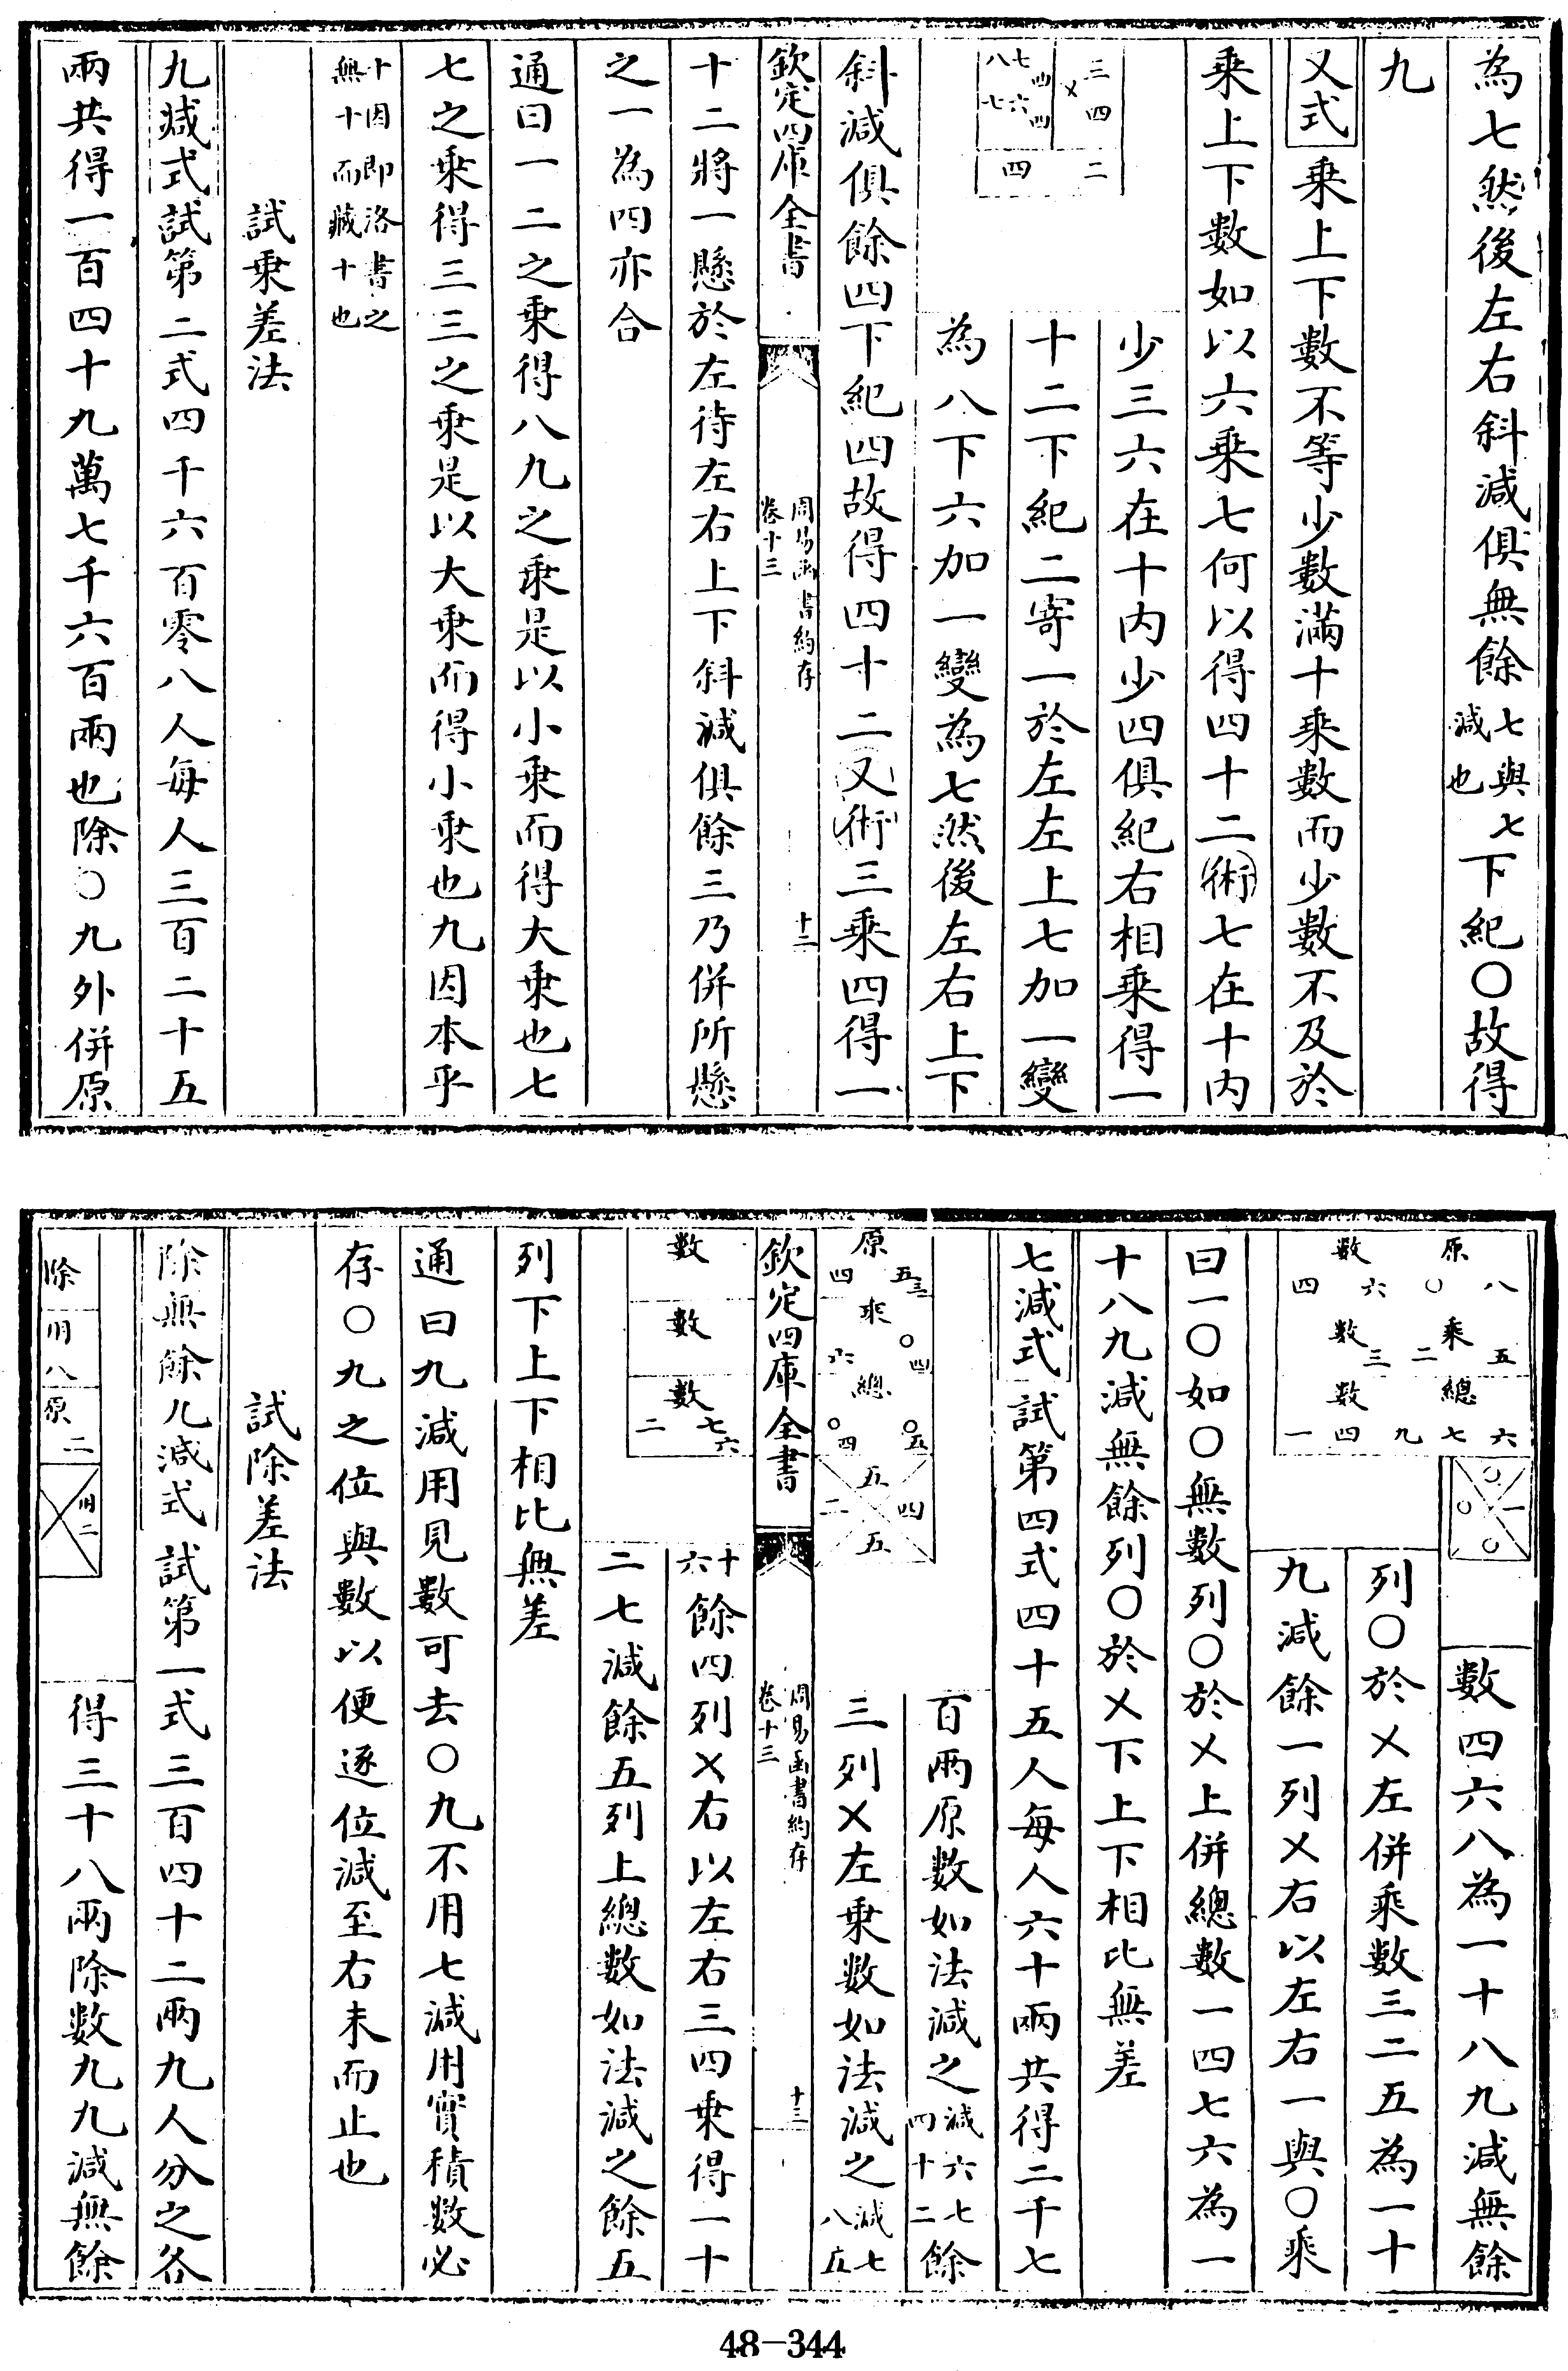 為七然後左右斜減俱無餘七與七減也下紀〇故得
九
又式乘上下數不等少數滿十乘數而少數不及於
乘上下數如以六乘七何以得四十二術七在十內
少三六在十內少四俱紀右相乘得一
十二下紀二寄一於左左上七加一變
為八下六加一變為七然後左右上下
三四二
乂
四四四
七六
八七
斜減俱餘四下紀四故得四十二又術三乘四得一
欽定四庫全書
周易函書約存
卷十三
十二
十二將一懸於左待左右上下斜減俱餘三乃併所懸
之一為四亦合
通曰一二之乘得八九之乘是以小乘而得大乘也七
七之乘得三三之乘是以大乘而得小乘也九因本乎
十因即洛書之
無十而藏十也
試乘差法
九減式試第二式四千六百零八人每人三百二十五
兩共得一百四十九萬七千六百兩也除〇九外併原
原數 八〇六四
乘數 五二三
總數 六七九四一
〇一〇〇
數四六八為一十八九減無餘
列〇於乂左併乘數三二五為一十
九減餘一列乂右以左右一與〇乘
曰一〇如〇無數列〇於乂上併總數一四七六為一
十八九減無餘列〇於乂下上下相比無差
七減式試第四式四十五人每人六十兩共得二千七
百兩原數如法減之減六七四十二餘
三列乂左乘數如法減之減七八五
原五三四
乘〇四六
總〇五〇四
五四二五
欽定四庫全書
周易函書約存
卷十三
十三
十六餘四列乂右以左右三四乘得一十
二七減餘五列上總數如法減之餘五
數
數
數七六二
列下上下相比無差
通曰九減用見數可去〇九不用七減用實積數必
存〇九之位與數以便逐位減至右末而止也
試除差法
除無餘九減式試第一式三百四十二兩九人分之各
得三十八兩除數九九減無餘
除
八
原
二
48-344